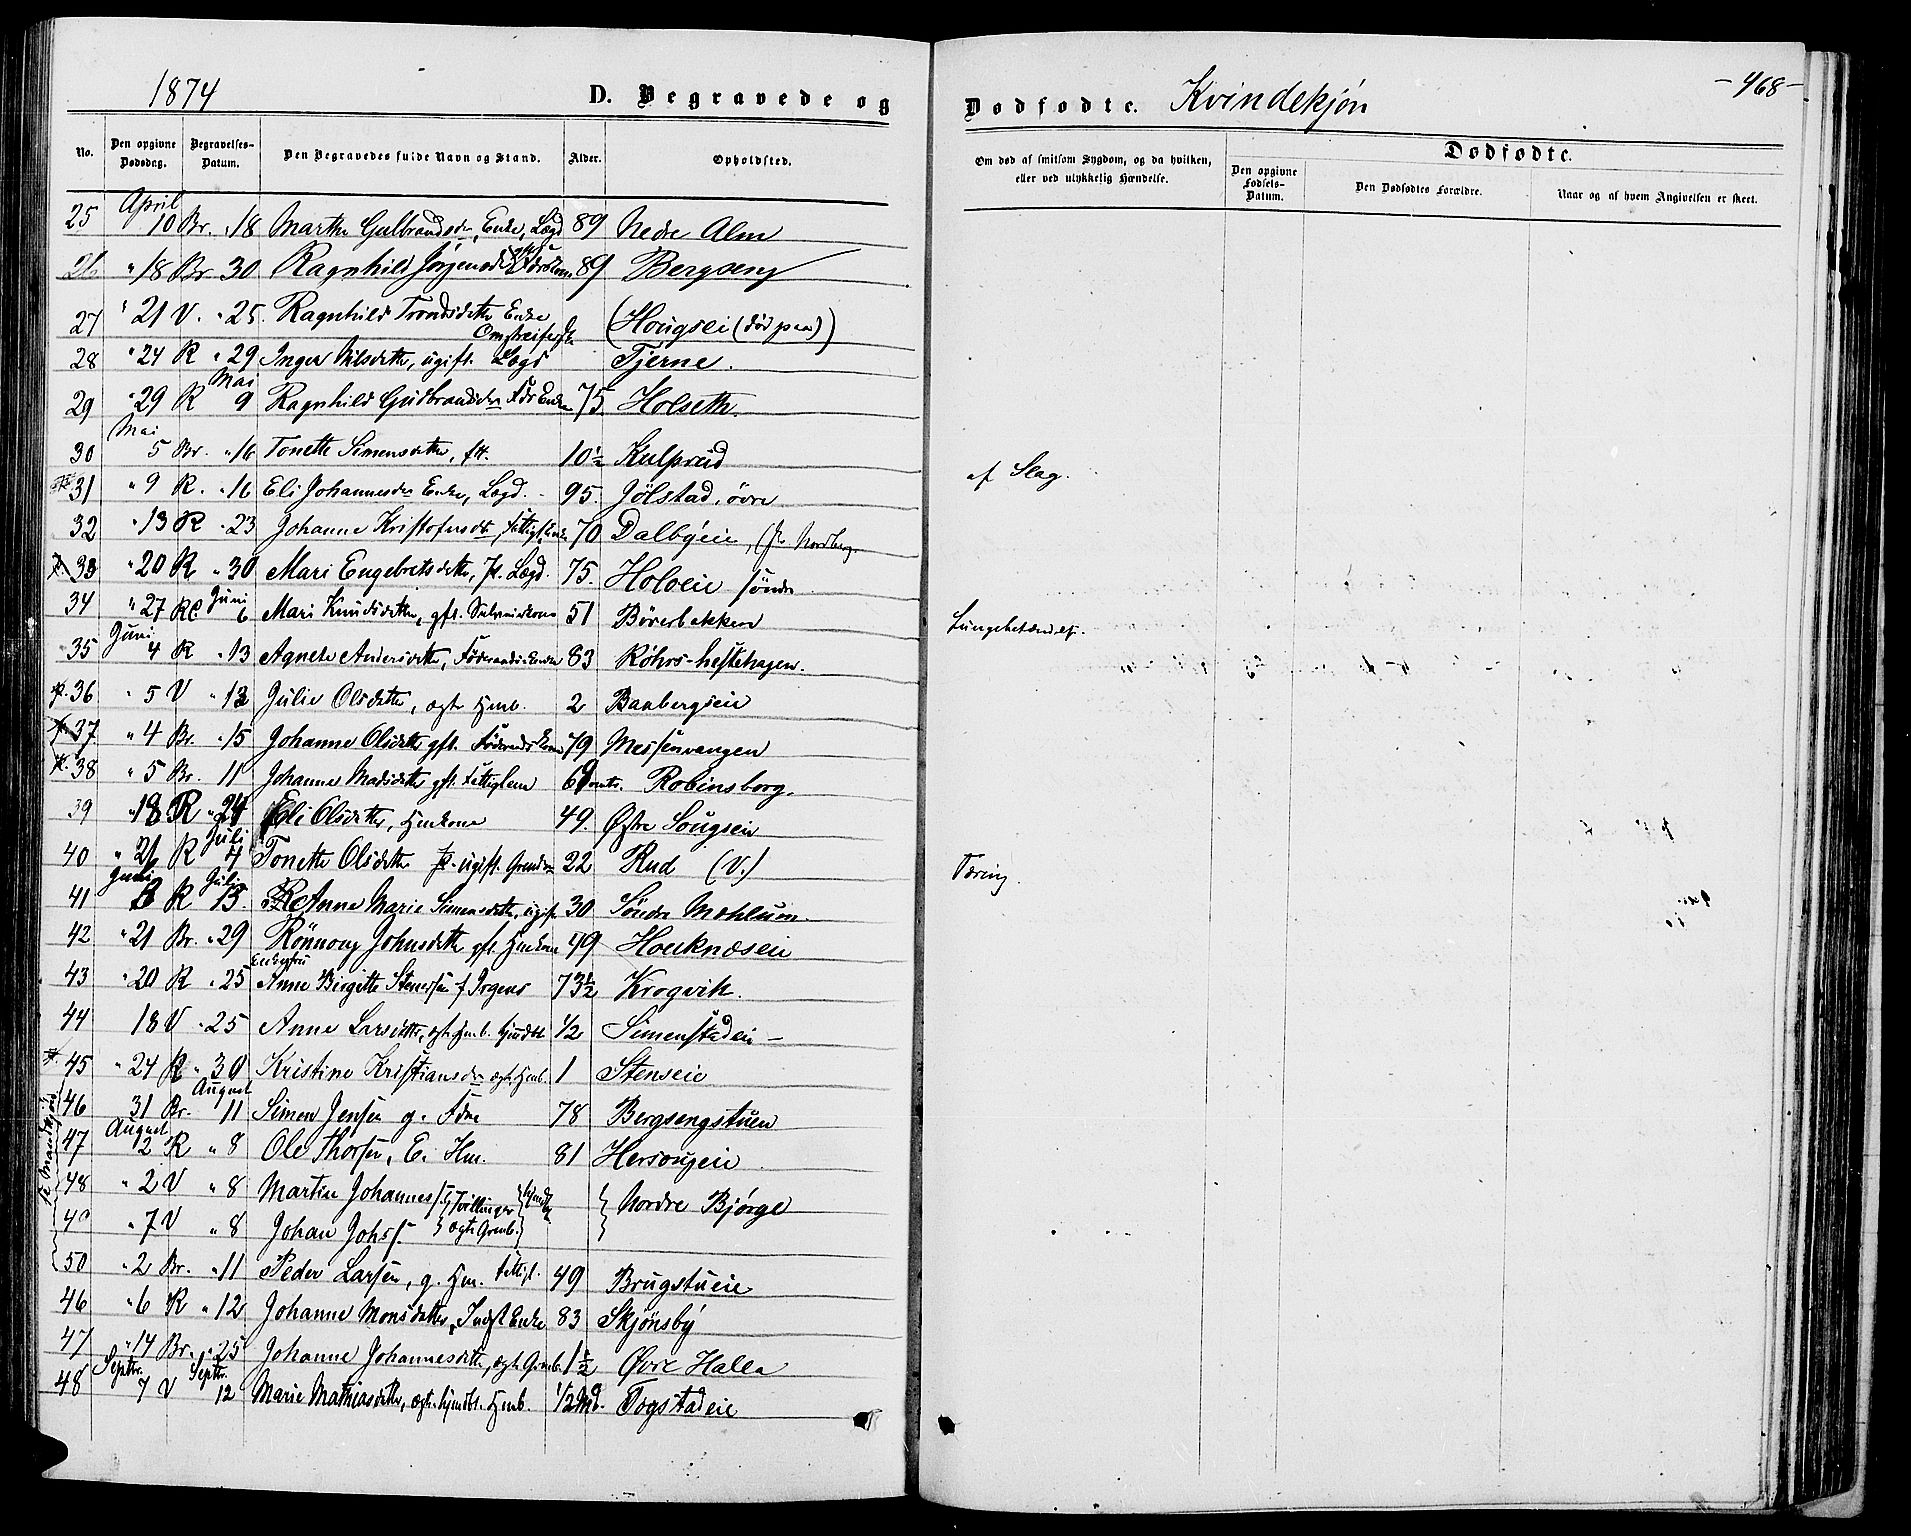 1874 D. Begravede og Dødfødte. Kvindekjøn -468-
No. Den opgivne Dødsdag. Begravelses-Datum. Den Begravedes fulde Navn og Stand. Alder. Opholdsted. Om død af smitsom Sygdom, og da hvilken, eller ved ulykkelig Hændelse. Dødfødte.
Den opgivne Fødsels-Datum. Den Dødfødtes Forældre. Naar og af hvem Angivelsen er skeet.
25 April 10 Br. " 18 Marthe Gulbrandsdr, Enke, Lægd 89 Nedre Alm
26 " 18 Br. 30 Ragnhild Jørgensd 89 Bergseng
27 " 21 V. " 25. Ragnhild Trondsdatter Enke Omstreiferske (Hougsei (død paa))
28 " 24 R " 29 Inger Nilsdatter, ugift. Lægd Tjerne.
29 " 29 R Mai 9 Ragnhild Gudbrandsdr Fdr Enke 75 Holseth.
30 Mai 5 Br. " 16 Tonette Simensdatter, ftt. 10½ Kulprud af Slag.
31 " 9 R. " 16 Eli Johannesdr Enke, Lægd. 95. Jölstad, övre
32 " 13 R " 23 Johanne Kristofersdtr, Fattigl. Enke 70 Dalbyeie, (fr. Nordberg.
33 " 20 R " 30 Mari Engebretsdatter, Lægd. 75. Holoeie söndre
34 " 27 R Juni 6 Mari Knudsdatter, gft. Selveierkone 51 Böverbakken Lungebetændelse.
35 Juni 4 R " 13 Agnete Andersdatter, Föderaads Enke 83 Röhrs-hestehagen.
36 " 5 V " 13 Julie Olsdatter, ægte Hmb. 2 Banbergseie
37 " 4 Br. " 15 Johanne Olsdatter gft. Föderaadskone 79 Messenvangen
38 " 5 Br. 11 Johanne Madsdatter gft. Fattiglem 69 omtr. Robinsborg.
39 " 18 R " 24 Eli Olsdatter, Hmkone 49. Östre Sougseie
40 " 26 R Juli 4 Tonette Olsdatter ugift. 22 Rud (V.) Tæring.
41 R Juli 13. Anne Marie Simensdatter, ugift 30 Söndre Mæhlum.
42 " 21 Br. " 29 Rönnoug Johnsdatter gft. Hmkone 49 Houknæseie
43 " 20 R " 25 Enkefru Anne Birgitte Stenersen f. Irgens 73½ Krogvik.
44 18 V " 25 Anne Larsdatter, ægte Hmb. hjmdbt. ½ Simenstadeie
45 " 24 R " 30 Kristine Kristiansdr ægte Hmb. 1 Stenseie
46 31 Br. August 11 Simen Jensen g. Fdm 78 Bergsengstuen
47 August 2 R " 8 Ole Thorsen, E. Hm. 81 Hersougeie
48 " 2 V " 8 Martin Johannes s. } Tvillinger } hjmdbt } Nordre Bjørge
49 " 7 V " 8 Johan Johs s. } ægte Grmb.
50 " 2 Br. " 11 Peder Larsen, g. Hm. Fattigl. 49 Brugstueie
46 " 6 R " 12 Johanne Monsdatter, Indst Enke 83 Skjönsby
47 " 14 Br. " 25 Johanne Johannesdatter, ægte Grmb. 1½ Övre Halla
48 Septbr. 7 V Septbr. 12 Marie Mathiasdatter, ægte hjmdbt. Hmb. ½ Md. Togstadeie